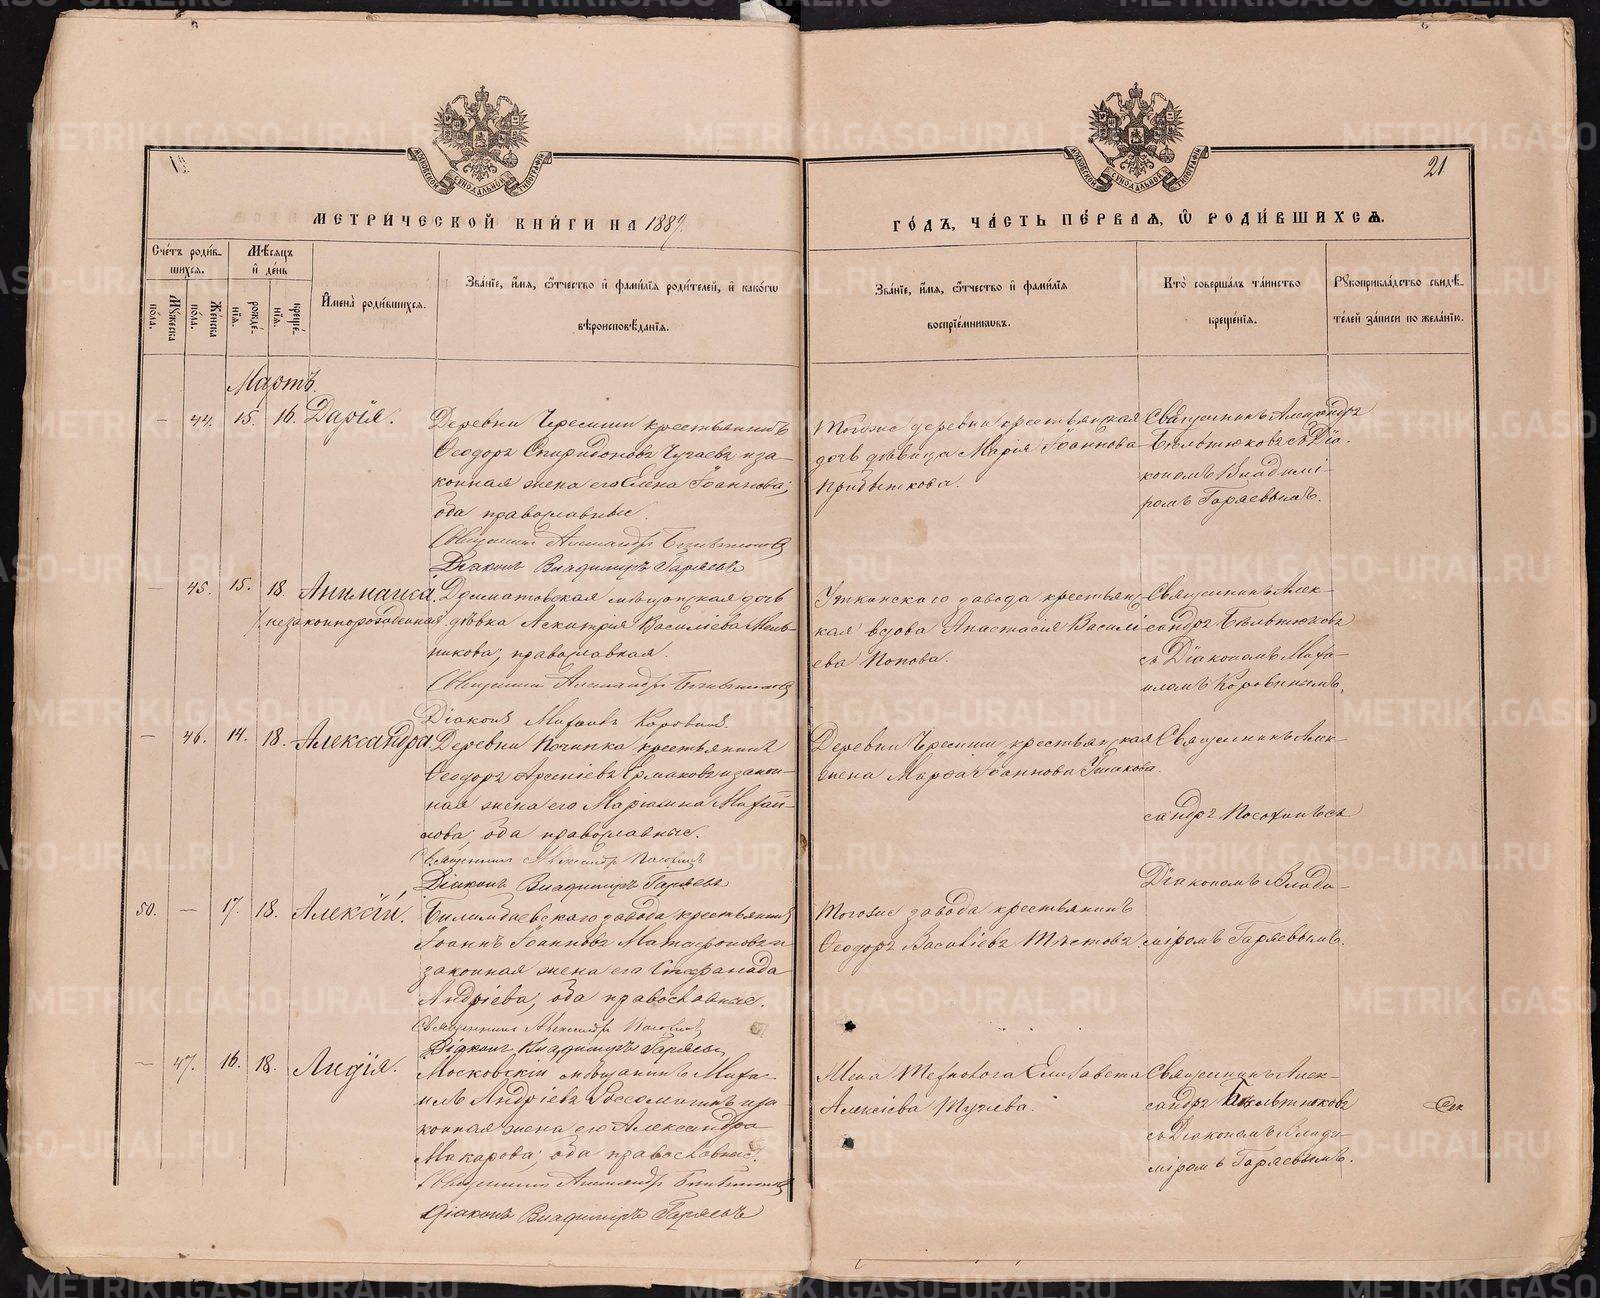 МЕТРИЧЕСКОЙ КНИГИ НА 1889.
Счетъ родив-
шихся.
Мѣсяцъ
и день
Мужеска
пола.
Женска
пола.
рожде-
нія.
креще-
нія.
Имена родившихся.
Званіе, имя, отчество и фамилія родителей, и какого
вѣроисповѣданія.
Мартъ.
— 44. 15. 16. Дарія.
Деревни Черемши крестьянинъ
Ѳеодоръ Спиридоновъ Чугаевъ и за-
конная жена его Елена Іоаннова;
оба православные.
Священникъ Александръ Бѣльтюковъ
Діаконъ Владиміръ Гаряевъ
— 45. 15. 18. Анимаиса.
незаконнорожденная
Далматовская мѣщанская дочь
дѣвка Аскитрія Василіева Мель-
никова; православная.
Священникъ Александръ Бѣльтюковъ
Діаконъ Михаилъ Коровинъ.
— 46. 14. 18. Александра.
Деревни Починка крестьянинъ
Ѳеодоръ Арсеніевъ Ермаковъ и закон-
ная жена его Маріамна Михаи-
лова; оба православные.
Священникъ Александръ
Діаконъ Владиміръ Гаряевъ
50. — 17. 18. Алексій.
Билимбаевскаго завода крестьянинъ
Іоаннъ Іоанновъ и
законная жена его Стефанида
Андріева; оба православные.
Священникъ Александръ
Діаконъ Владиміръ Гаряевъ
— 47. 16. 18. Лидія.
Московскій мѣщанинъ Миха-
илъ Андріевъ и за-
конная жена его Александра
Макарова; оба православные.
Священникъ Александръ Бѣльтюковъ
Діаконъ Владиміръ Гаряевъ
21
ГОДЪ, ЧАСТЬ ПЕРВАЯ, Ѡ РОДИВШИХСЯ.
Званіе, имя, отчество и фамилія
воспріемниковъ.
Кто совершалъ таинство
крещенія.
Рукоприкладство свидѣ-
телей записи по желанію.
Тогоже деревни крестьянская
дочь дѣвица Марія Іоаннова
Священникъ Александръ
Бѣльтюковъ съ Діа-
кономъ Владимі-
ромъ Гаряевымъ.
Уткинскаго завода крестьян-
кая вдова Анастасія Васили-
ева Попова.
Священникъ Алек-
сандръ Бѣльтюковъ
съ Діакономъ Миха-
иломъ Коровинымъ.
Деревни Черемши крестьянская
жена Марѳа Іоаннова Ушакова.
Священникъ Алек-
сандръ съ
Діакономъ Влади-
міромъ Гаряевымъ.
Тогоже завода крестьянинъ
Ѳеодоръ Василіевъ
Жена Технолога Елисавета
Алексіева
Священникъ Алек-
сандръ Бѣльтюковъ
съ Діакономъ Влади-
міромъ Гаряевымъ.